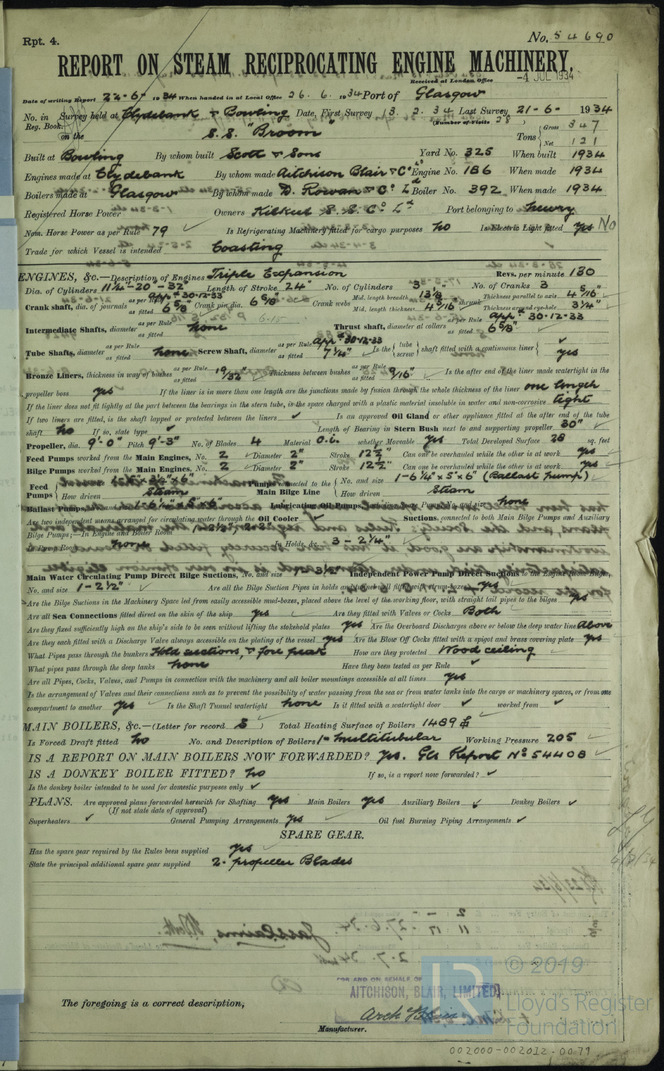 Rpt. 4.
No. 54690
REPORT ON STEAM RECIPROCATING ENGINE MACHINERY.
Received at London Office -4 JUL 1934
Date of writing Report 22-6-1934 When handed in at Local Office 26.6.1934 Port of Glasgow
No. in Survey held at Clydebank & Bowling Date, First Survey 13.2.34 Last Survey 21-6-1934
Reg. Book. (Number of Visits 28)
on the S.S. "Broom" Tons Gross 347 Net 121
Built at Bowling By whom built Scott & Sons Yard No. 325 When built 1934
Engines made at Clydebank By whom made Aitchison Blair & Co Ld Engine No. 186 When made 1934
Boilers made at Glasgow By whom made D. Rowan & Co Ld Boiler No. 392 When made 1934
Registered Horse Power Owners Kilkeel S.S. Co Ld Port belonging to Newry
Nom. Horse Power as per Rule 79 Is Refrigerating Machinery fitted for cargo purposes no Is Electric Light fitted yes No
Trade for which Vessel is intended Coasting
ENGINES, &c.—Description of Engines Triple Expansion Revs. per minute 130
Dia. of Cylinders 11¼-20-32 Length of Stroke 24" No. of Cylinders 3 No. of Cranks 3
Crank shaft, dia. of journals as per Rule App. 30-12-33 as fitted 6⅝" Crank pin dia. 6⅝" Crank webs Mid. length breadth 13⅛ Mid. length thickness 4 5/16" Thickness parallel to axis 4 5/16" Thickness around eye-hole 3¼"
Intermediate Shafts, diameter as per Rule as fitted none Thrust shaft, diameter at collars as per Rule App. 30-12-33 as fitted 6⅝"
Tube Shafts, diameter as per Rule as fitted none Screw Shaft, diameter as per Rule App. 30-12-33 as fitted 7¼" Is the tube screw shaft fitted with a continuous liner yes
Bronze Liners, thickness in way of bushes as per Rule as fitted 19/32" Thickness between bushes as per Rule as fitted 9/16" Is the after end of the liner made watertight in the
propeller boss yes If the liner is in more than one length are the junctions made by fusion through the whole thickness of the liner one length
If the liner does not fit tightly at the part between the bearings in the stern tube, is the space charged with a plastic material insoluble in water and non-corrosive tight
If two liners are fitted, is the shaft lapped or protected between the liners Is an approved Oil Gland or other appliance fitted at the after end of the tube
shaft no If so, state type Length of Bearing in Stern Bush next to and supporting propeller 30"
Propeller, dia. 9'-0" Pitch 9'-3" No. of Blades 4 Material C.I. whether Moveable yes Total Developed Surface 28 sq. feet
Feed Pumps worked from the Main Engines, No. 2 Diameter 2" Stroke 12½" Can one be overhauled while the other is at work yes
Bilge Pumps worked from the Main Engines, No. 2 Diameter 2" Stroke 12½" Can one be overhauled while the other is at work yes
Feed Pumps No. and size How driven Steam connected to the Main Bilge Line No. and size 1-6¼"×5"×6" (Ballast Pump) How driven Steam
Ballast Pumps, Lubricating Oil Pumps, none
Are two independent means arranged for circulating water through the Oil Cooler Suctions, connected to both Main Bilge Pumps and Auxiliary
Bilge Pumps;—In Engine and Boiler Room
none In Holds, &c. 3 - 2¼"
Main Water Circulating Pump Direct Bilge Suctions, No. and size Independent Power Pump Direct Suctions
No. and size 1-2½" Are all the Bilge Suction Pipes in holds yes
Are the Bilge Suctions in the Machinery Space led from easily accessible mud-boxes, placed above the level of the working floor, with straight tail pipes to the bilges yes
Are all Sea Connections fitted direct on the skin of the ship yes Are they fitted with Valves or Cocks Both
Are they fixed sufficiently high on the ship's side to be seen without lifting the stokehold plates yes Are the Overboard Discharges above or below the deep water line Above
Are they each fitted with a Discharge Valve always accessible on the plating of the vessel yes Are the Blow Off Cocks fitted with a spigot and brass covering plate yes
What Pipes pass through the bunkers Hold suctions, & fore peak How are they protected Wood ceiling
What pipes pass through the deep tanks none Have they been tested as per Rule
Are all Pipes, Cocks, Valves, and Pumps in connection with the machinery and all boiler mountings accessible at all times yes
Is the arrangement of Valves and their connections such as to prevent the possibility of water passing from the sea or from water tanks into the cargo or machinery spaces, or from one
compartment to another yes Is the Shaft Tunnel watertight none Is it fitted with a watertight door worked from
MAIN BOILERS, &c.—(Letter for record S) Total Heating Surface of Boilers 1489
Is Forced Draft fitted no No. and Description of Boilers 1- multitubular Working Pressure 205
IS A REPORT ON MAIN BOILERS NOW FORWARDED? yes. Gls Report No 54408
IS A DONKEY BOILER FITTED? no If so, is a report now forwarded?
Is the donkey boiler intended to be used for domestic purposes only
PLANS. Are approved plans forwarded herewith for Shafting yes Main Boilers yes Auxiliary Boilers Donkey Boilers
(If not state date of approval)
Superheaters General Pumping Arrangements yes Oil fuel Burning Piping Arrangements
SPARE GEAR.
Has the spare gear required by the Rules been supplied yes
State the principal additional spare gear supplied 2- propeller Blades
FOR AND ON BEHALF OF
AITCHISON, BLAIR, LIMITED
The foregoing is a correct description,
Manufacturer.
© 2019
Lloyd's Register
Foundation
002000-002012-0079